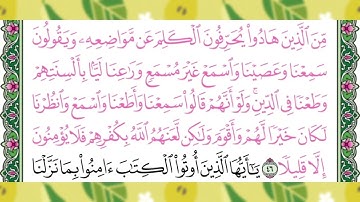 مِّنَ ٱلَّذِينَ هَادُوا۟ يُحَرِّفُونَ ٱلْكَلِمَ عَن مَّوَاضِعِهِۦ وَيَقُولُونَ
سَمِعْنَا وَعَصَيْنَا وَٱسْمَعْ غَيْرَ مُسْمَعٍ وَرَٰعِنَا لَيًّۢا بِأَلْسِنَتِهِمْ
وَطَعْنًا فِى ٱلدِّينِ ۚ وَلَوْ أَنَّهُمْ قَالُوا۟ سَمِعْنَا وَأَطَعْنَا وَٱسْمَعْ وَٱنظُرْنَا
لَكَانَ خَيْرًا لَّهُمْ وَأَقْوَمَ وَلَٰكِن لَّعَنَهُمُ ٱللَّهُ بِكُفْرِهِمْ فَلَا يُؤْمِنُونَ
إِلَّا قَلِيلًا ٤٦ يَٰٓأَيُّهَا ٱلَّذِينَ أُوتُوا۟ ٱلْكِتَٰبَ ءَامِنُوا۟ بِمَا نَزَّلْنَا